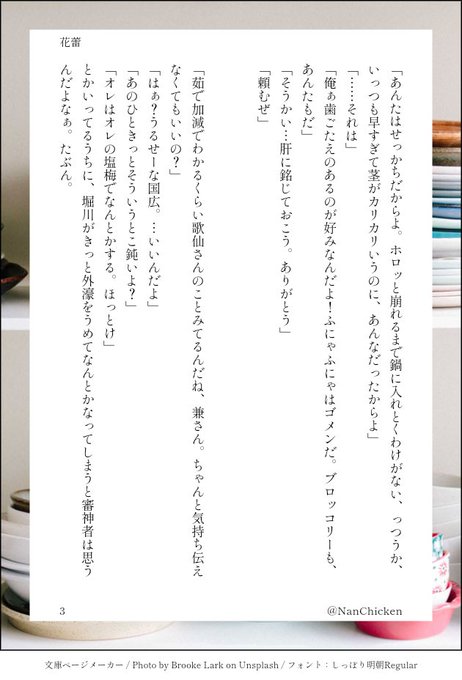 花蕾
「あんたはせっかちだからよ。ホロッと崩れるまで鍋に入れとくわけがない、っつうか、
いっつも早すぎて茎がカリカリいうのに、あんなだったからよ」
「……それは」
「俺ぁ歯ごたえのあるのが好みなんだよ！ふにゃふにゃはゴメンだ。ブロッコリーも、
あんたもだ」
「そうかい…肝に銘じておこう。ありがとう」
「頼むぜ」
「茹で加減でわかるくらい歌仙さんのことみてるんだね、兼さん。ちゃんと気持ち伝え
なくてもいいの？」
「はぁ？うるせーな国広。…いいんだよ」
「あのひときっとそういうとこ鈍いよ？」
「オレはオレの塩梅でなんとかする。ほっとけ」
とかいってるうちに、堀川がきっと外濠をうめてなんとかなってしまうと審神者は思う
んだよなぁ。たぶん。
3
@NanChicken
文庫ページメーカー / Photo by Brooke Lark on Unsplash / フォント：しっぽり明朝Regular